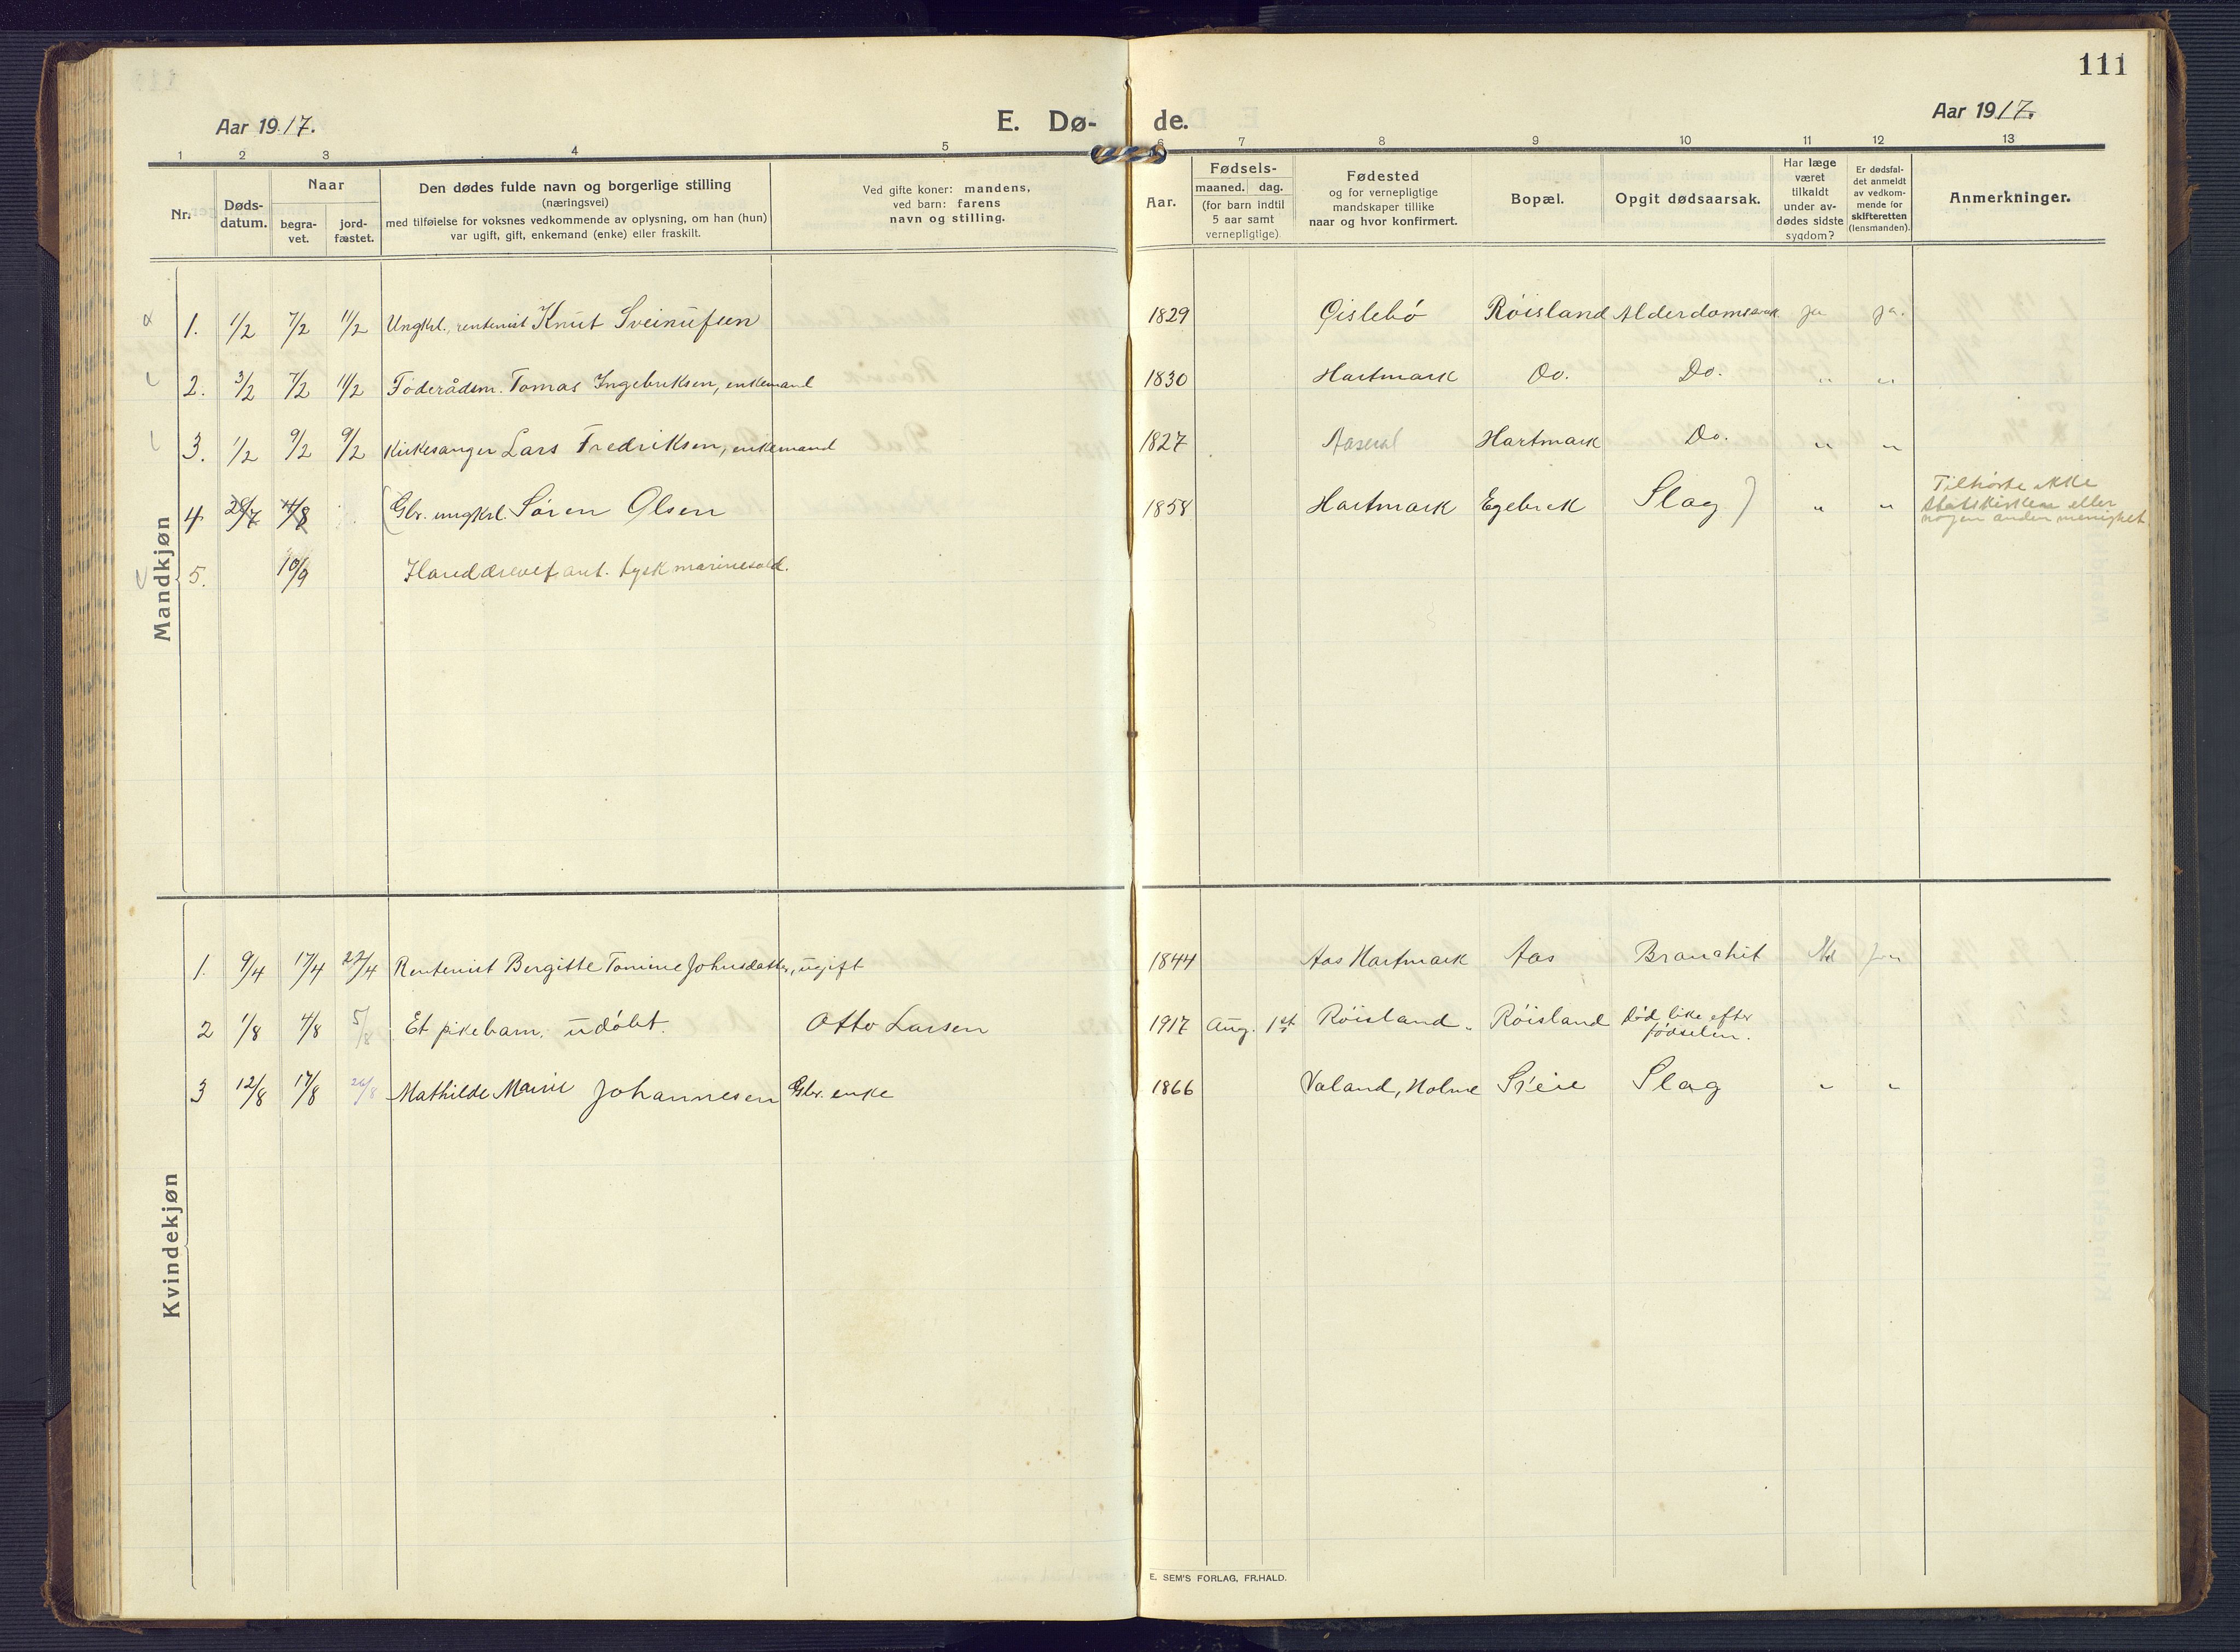 111
Aar 1917.
E. Dø-
de.
Aar 1917.
1 2 3 4 5 6 7 8 9 10 11 12 13
Nr.
Døds-
datum.
Naar
begra-
vet.
jord-
fæstet.
Den dødes fulde navn og borgerlige stilling
(næringsvei)
med tilføielse for voksnes vedkommende av oplysning, om han (hun)
var ugift, gift, enkemand (enke) eller fraskilt.
Ved gifte koner: mandens,
ved barn: farens
navn og stilling.
Aar.
Fødsels-
maaned. dag.
(for barn indtil
5 aar samt
vernepligtige)
Fødested
og for vernepligtige
mandskaper tillike
naar og hvor konfirmert.
Bopæl.
Opgit dødsaarsak.
Har læge
været
tilkaldt
under av-
dødes sidste
sygdom?
Er dødsfal-
det anmeldt
av vedkom-
mende for
skifteretten
(lensmanden).
Anmerkninger.
Mandkjøn
1. 1/2 7/2 11/2 Ungkrl., rentenist Knut Sveinufsen 1829 Øislebö Röisland Alderdomssvak ja ja.
2. 3/2 7/2 11/2 Föderådsm. Tomas Ingebriksen, enkemand 1830 Hartmark Do. Do. " "
3. 1/2 9/2 9/2 Kirkesanger Lars Fredriksen, enkemand 1827 Aaseral Hartmark Do. " "
4 28/7 4/8 (Gbr. ungkrl. Sören Olsen 1858 Hartmark Egebrek Slag) " "
Tilhörte ikke
statskirken eller
nogen anden menighet
5. 10/9 tysk marinesold.
Kvindekjøn
1. 9/4 17/4 22/4 Rentenist Bergitte Tomine Johnsdatter, ugift 1844 Aas Hartmark Aas Bronchit
2 1/8 4/8 5/8 Et pikebarn, udöbt. Otto Larsen 1917 Aug. 1st Röisland Röisland död like efter
födselen.
3 12/8 17/8 26/8 Mathilde Marie Johannesen Gbr. enke 1866 Valand, Holme Slag " "
E. SEM'S FORLAG, FR.HALD.